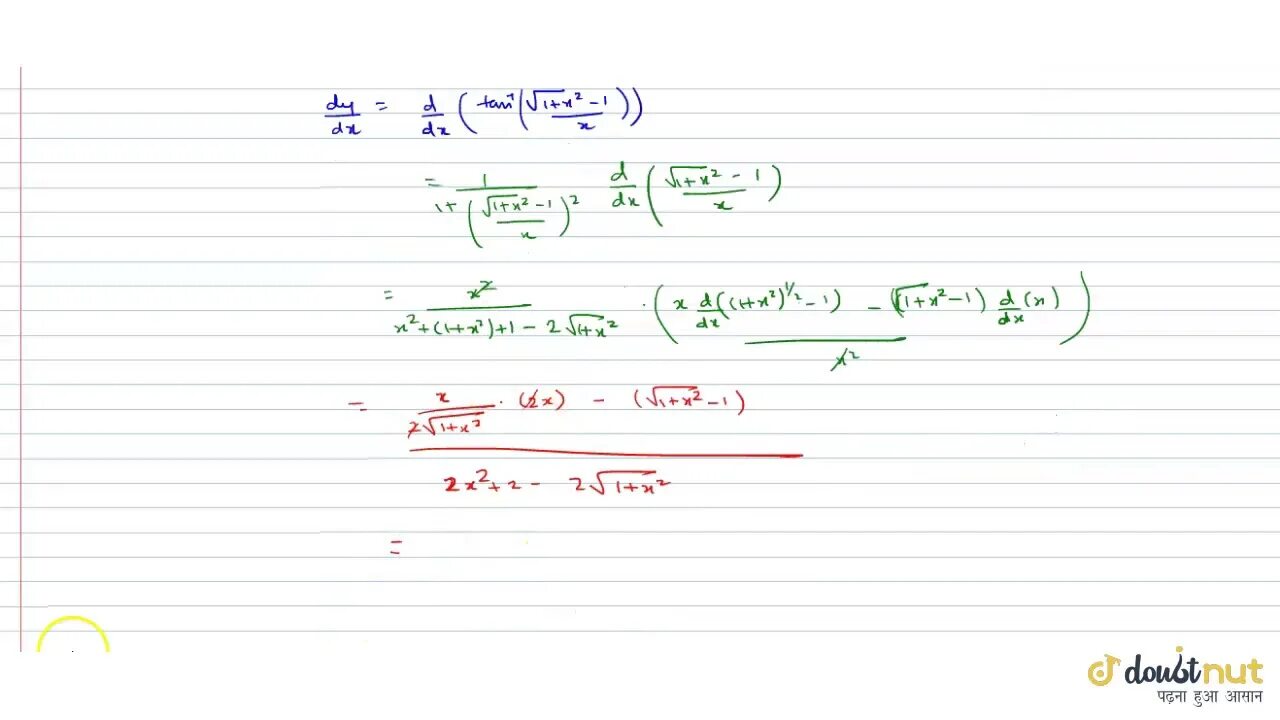 dy/dx = d/dx (tan⁻¹(√1+x² - 1 / x))
= 1 / 1+(√1+x² - 1 / x)² d/dx (√1+x² - 1 / x)
= x² / x²+(1+x²)+1 - 2√1+x² · (x d/dx((1+x²)^1/2 - 1) - (√1+x² - 1) d/dx (x) / x²)
= x / 2√1+x² · (2x) - (√1+x² - 1) / 2x²+2 - 2√1+x²
=
doubtnut
पढ़ना हुआ आसान